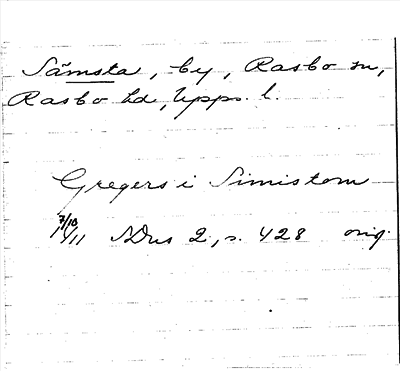 Sämsta, by, Rasbo sn,
Rasbo hd, Upps. l.
Gregers i Simistom
7/10 1411 SDns 2, s. 428 orig.